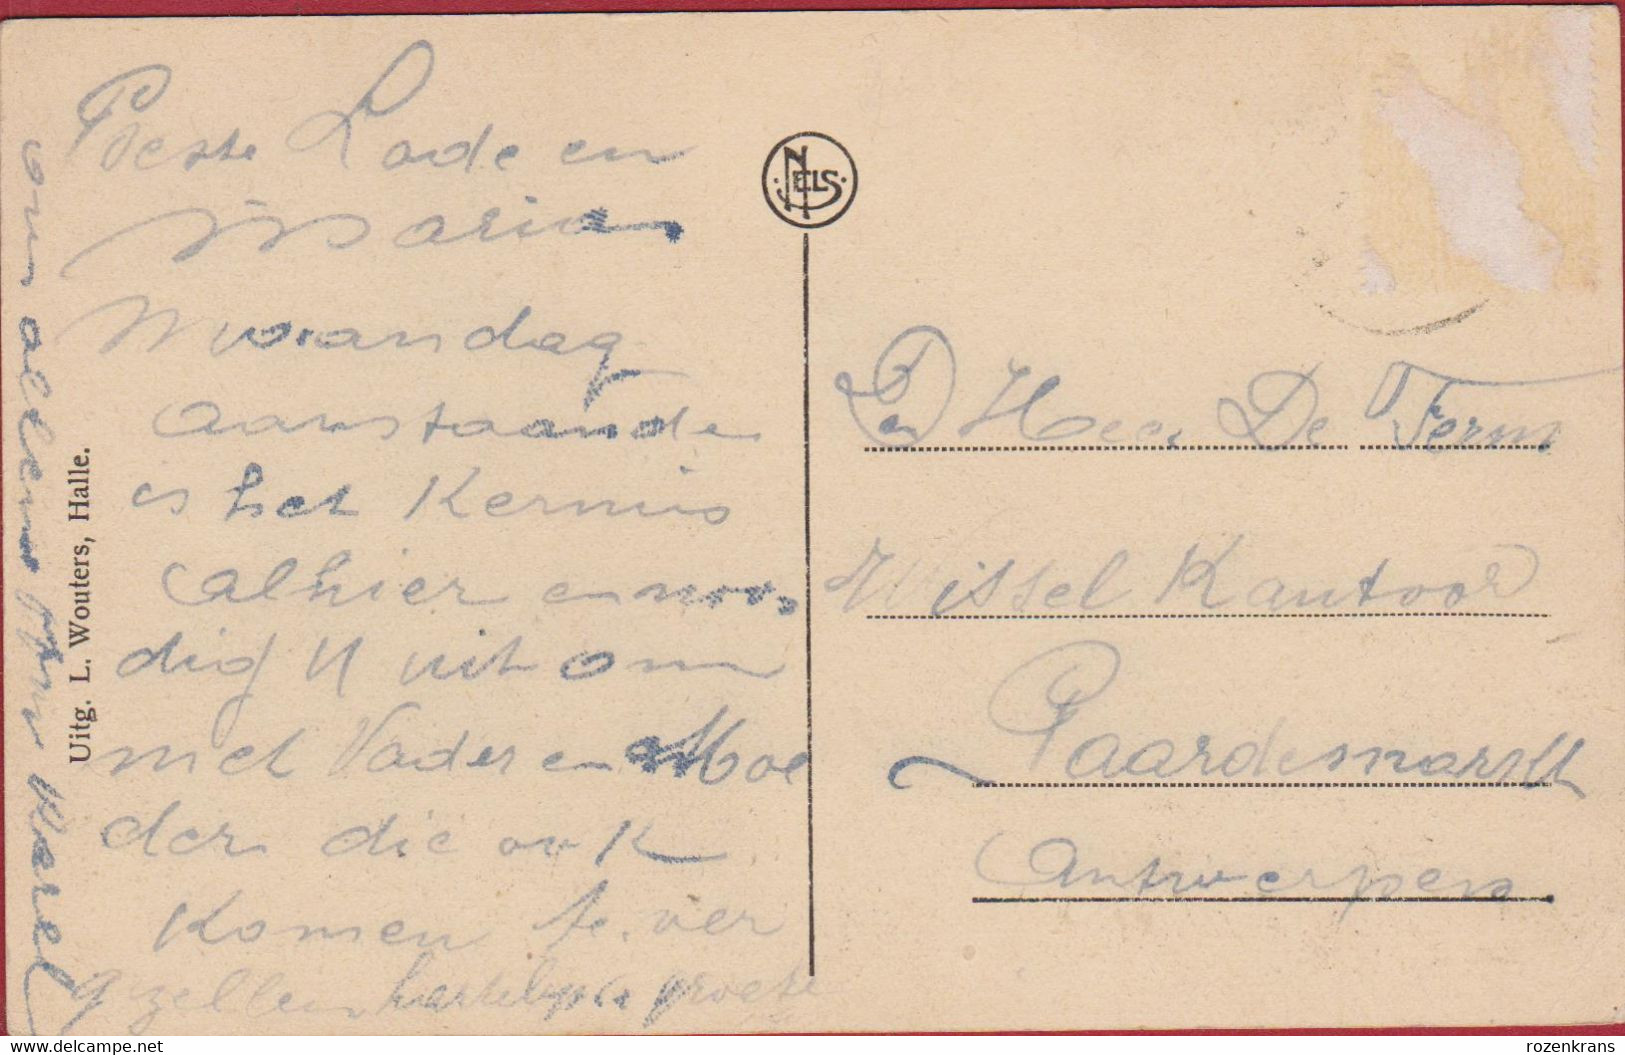 Beste Lode en
Maria
Maandag
aanstaande
is het Kermis
alhier en noo
dig U uit om
met Vader en Moe
der die ook
komen te ver
gezellen hartelijke groete
aan allen
Karel
Uitg. L. Wouters, Halle.
NELS
Den Heer De Ferm
Wissel Kantoor
Paardesmarkt
Antwerpen
rozenkrans
www.delcampe.net